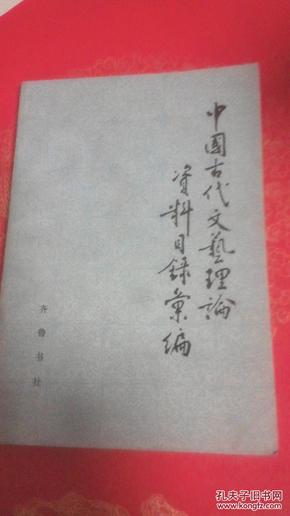 中國古代文藝理論
资料目録彙编
齐鲁书社
孔夫子旧书网